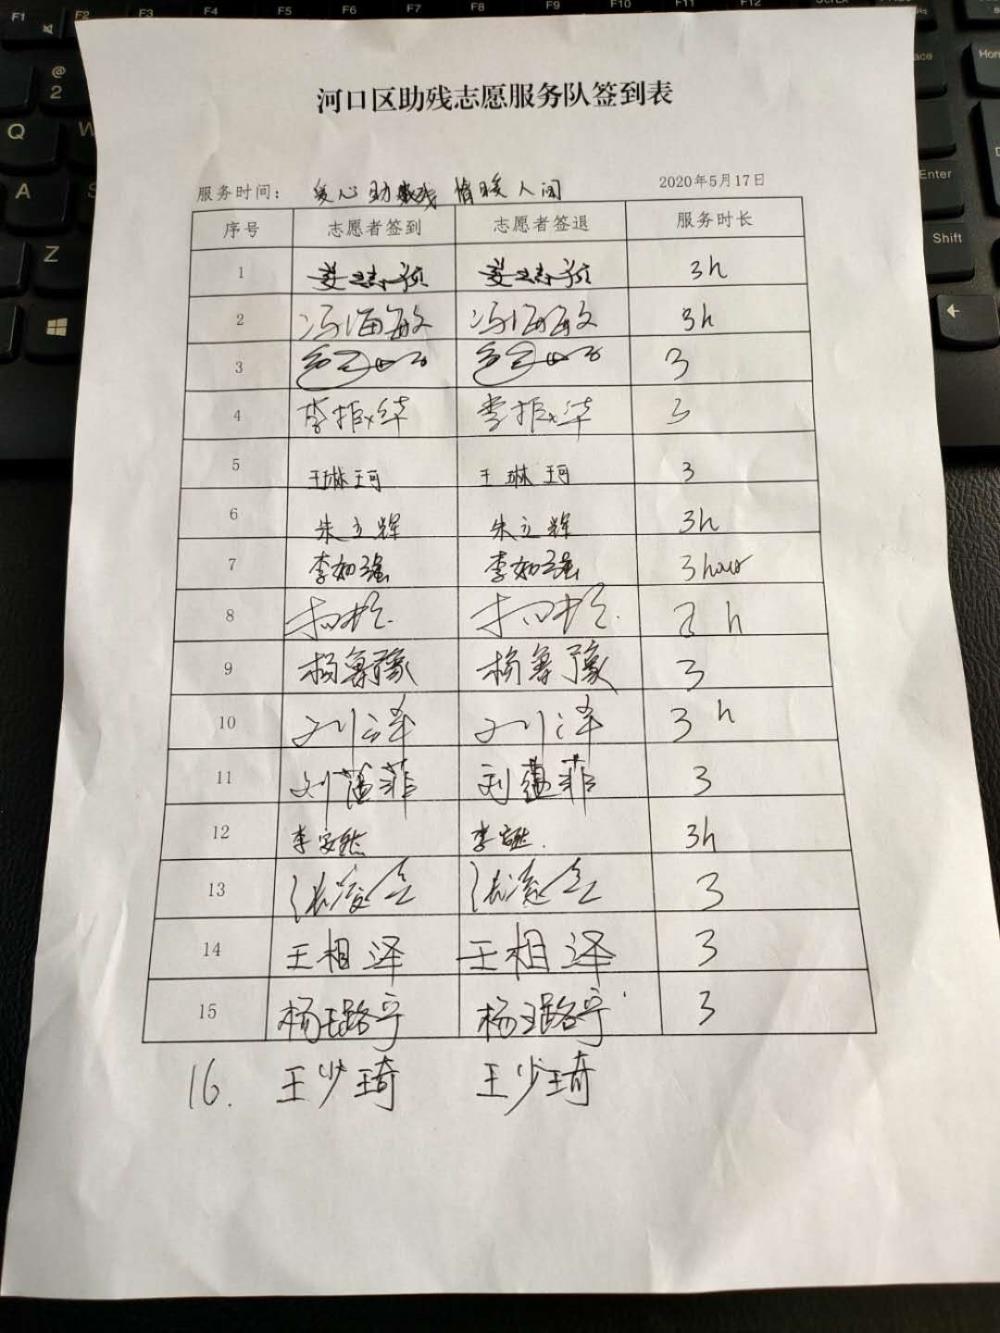 河口区助残志愿服务队签到表
服务时间： 爱心助残 情暖人间 2020年5月17日
序号 志愿者签到 志愿者签退 服务时长
1 3h
2 冯海敏 冯海敏 3h
3 3
4 李振华 李振华 3
5 王琳珂 王琳珂 3
6 朱立辉 朱立辉 3h
7 李如强 李如强 3hour
8 h
9 杨鲁豫 杨鲁豫 3
10 刘泽 刘泽 3h
11 刘蕴菲 刘蕴菲 3
12 李安然 李安然. 3h
13 3
14 王相泽 王相泽 3
15 杨璐宁 杨璐宁 3
16. 王少琦 王少琦
F1 F2 F3 F4 F5 F6 F7 F8 F9 F10 F11 F12
@
2
Q W
A
Z
Enter
Shift